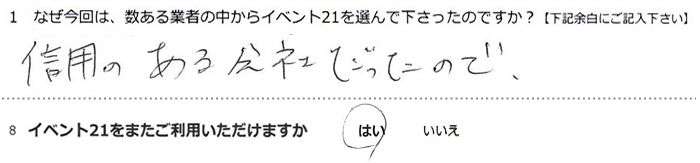 1 なぜ今回は、数ある業者の中からイベント21を選んで下さったのですか？【下記余白にご記入下さい】
信用の ある 会社 だったので、
8 イベント21をまたご利用いただけますか はい いいえ